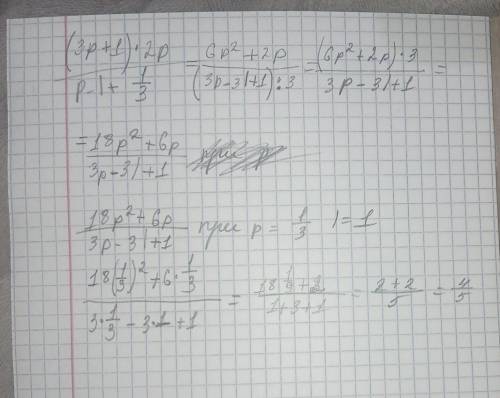 (3p+1)·2p / p-l+ 1/3 = 6p²+2p / (3p-3l+1):3 = (6p²+2p)·3 / 3p-3l+1 =
= 18p²+6p / 3p-3l+1
18p²+6p / 3p-3l+1 при p = 1/3 l=1
18(1/3)²+6·1/3 / 3·1/3 - 3·1+1 = 18·1/9+2 / 1+3+1 = 2+2 / 5 = 4/5